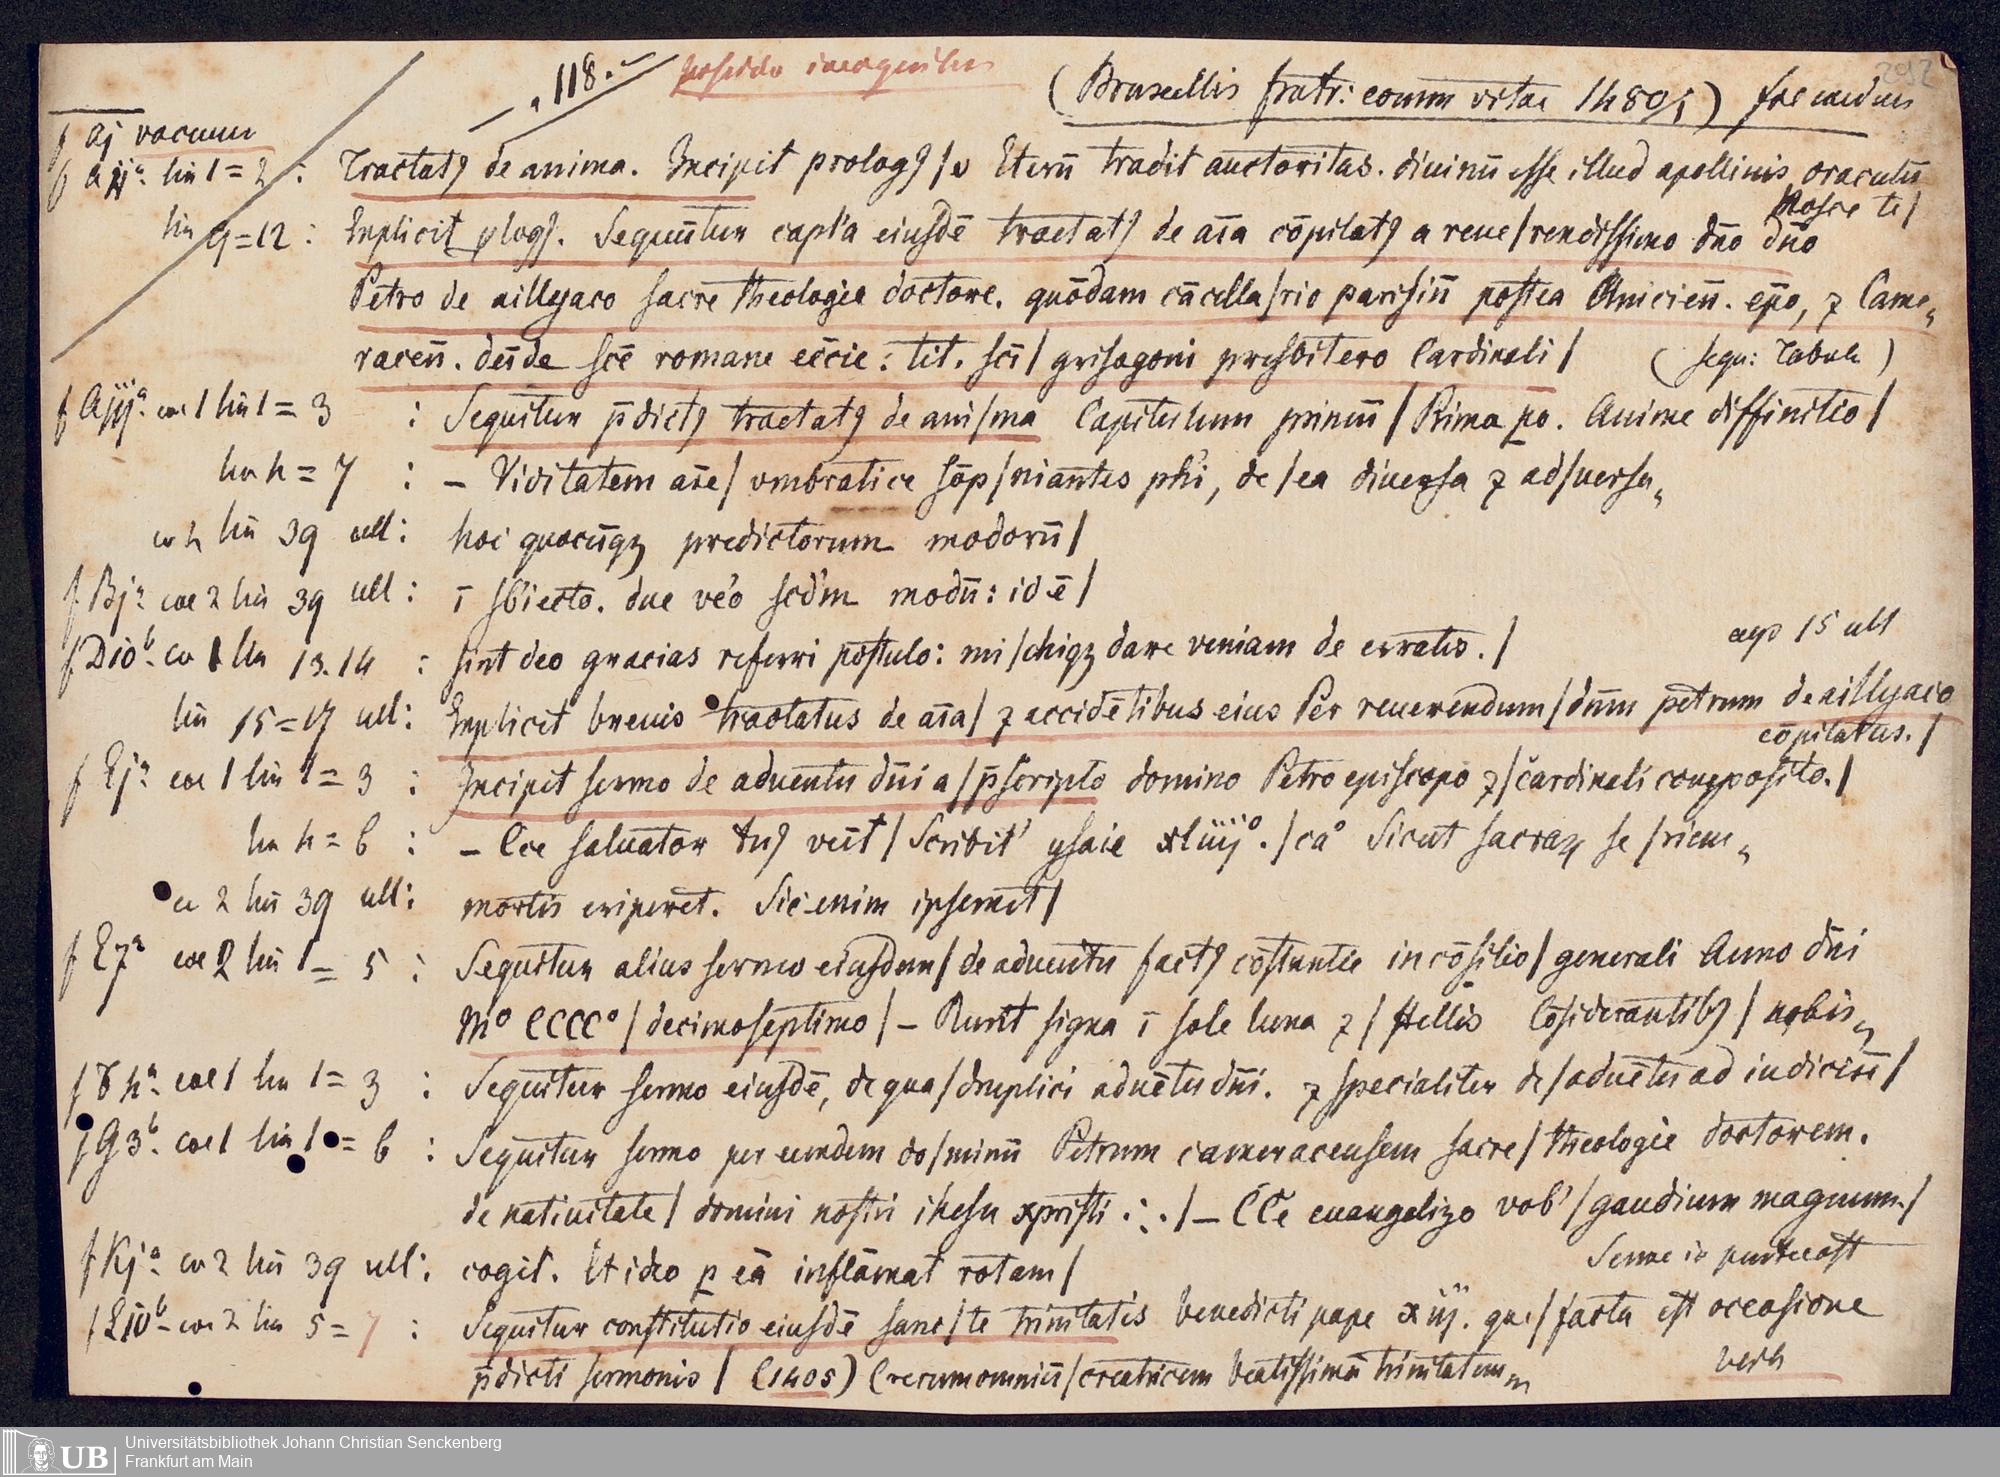 118. (Bruxellis fratr: comm vitae 1484)
f aj vacuum
lin 1=2 : Tractatꝯ de anima. Incipit prologꝯ / Eterū tradit auctoritas. diuinū esse illud apollinis oraculū
Nosce te /
lin 9=12 : Explicit plogꝯ. Sequūtur capl'a eiusdē tractatꝯ de aīa cōpilatꝯ a reue/rendissimo dn̄o dn̄o
Petro de aillyaco sacre theologie doctore. quōdam cācella/rio parisin̄ postea Aniciēn. ep̄o, ⁊ Came„
racen̄. deīde scē romane ecc̄ie : tit. scī / grisogoni presbitero Cardinali / (sequ: Tabula)
f Aiijᵃ. col 1 lin 1=3 : Sequitur p̄dictꝯ tractatꝯ de ani/ma Capitulum primū / Rima po. Anime diffinitio /
lin 4=7 : – Viditatem aīe / vmbratice sōp/niantes ph'i, de / ea diuersa ⁊ ad/uersa„
co 2 lin 39 ult : hoc quocūqꝫ predictorum modorū /
f Bjᵃ. col 2 lin 39 ult : ī sb'iecto. due ve'o scd'm modū : id ē /
f D10ᵇ. co 1 lin 13.14 : sint deo gracias referri postulo : mi/chiqꝫ dare veniam de erratis. /
lin 15=17 ult : Explicit breuis tractatus de aīa / ⁊ accidētibus eius Per reuerendum / dn̄m petrum de aillyaco
cōpilatus. /
f Ejᵃ col 1 lin 1=3 : Incipit sermo de aduentu dn̄i a / p̄scripto domino Petro episcopo ⁊ / cardinali compposito. /
lin 4=6 : – Cce saluator tuꝯ veīt / Scribit' ysaie xliiijº. / caº Sicut sacraꝝ se / riem„
co 2 lin 39 ult : mortis eriperet. Sic enim ipsemet /
f E7ᵃ col 2 lin 1=5 : Sequitur alius sermo eiusdem / de aduentu factꝯ cōstantie in cōsilio / generali Anno dn̄i
Mº CCCCº / decimoseptimo / – Runt signa ī sole luna ⁊ / stellis Cōsiderantibꝯ / nobis„
col 1 lin 1=3 : Sequitur sermo eiusdē, de qua/druplici aduētu dn̄i. ⁊ specialiter de / aduētu ad iudiciū /
f G3ᵇ. col 1 lin 1=6 : Sequitur sermo per eundem do/minū Petrum cameracensem sacre / theologie doctorem.
de natiuitate / domini nostri ihesu xpristi / – CCe euangelizo vob' / gaudium magnum. /
f Kjᵃ co 2 lin 39 ult : cogit. Et ideo p eā inflāmat rotam /
co 2 lin 5=7 : Sequitur constitutio eiusdē sanc/te trinitatis benedicti pape xiij. que / facta est occasione
p̄dicti sermonis / (1405) Crecum omniū / creatricem beatissimā trinitatem„
Universitätsbibliothek Johann Christian Senckenberg
Frankfurt am Main
UB